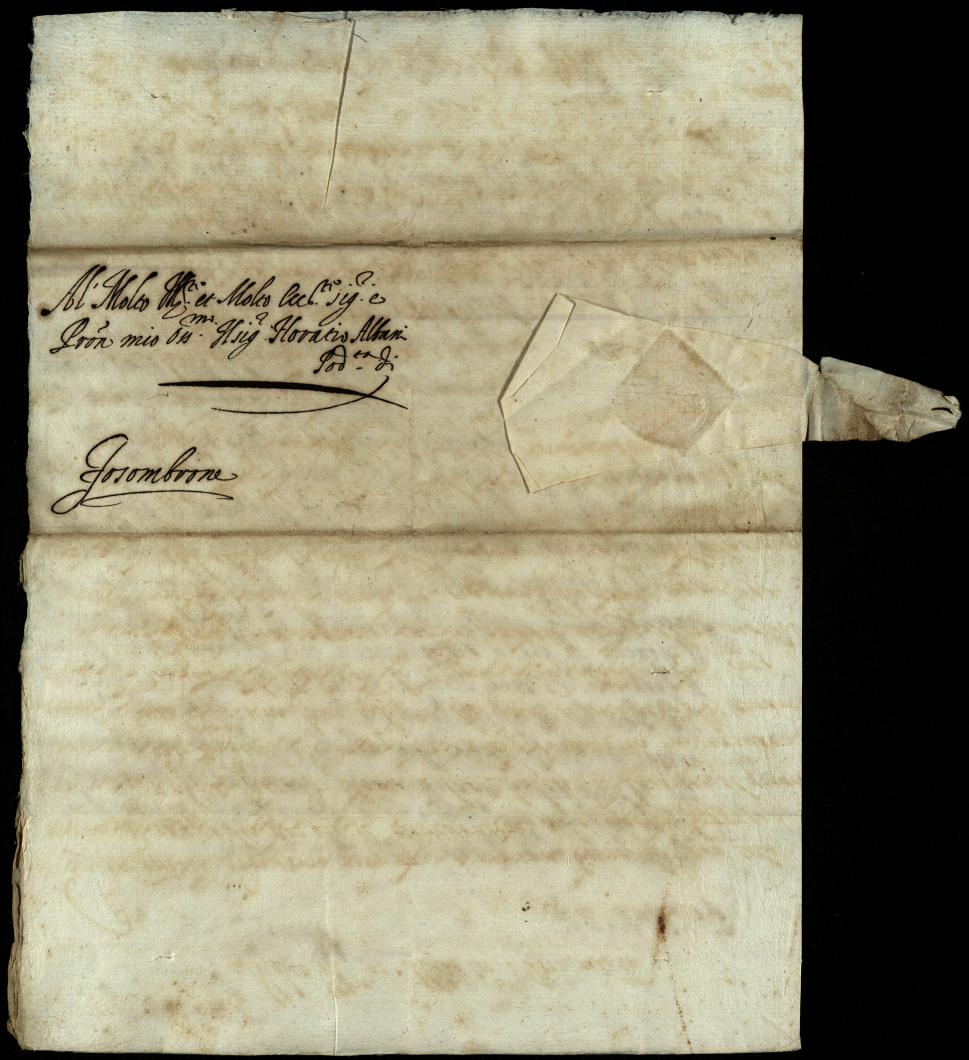 Al' Molto Ill.re et Molto Ecc.te sig.r e
Prōn mio oss.mo Il sig.r Horatio Albani
Pod.ta di
Fosombrone